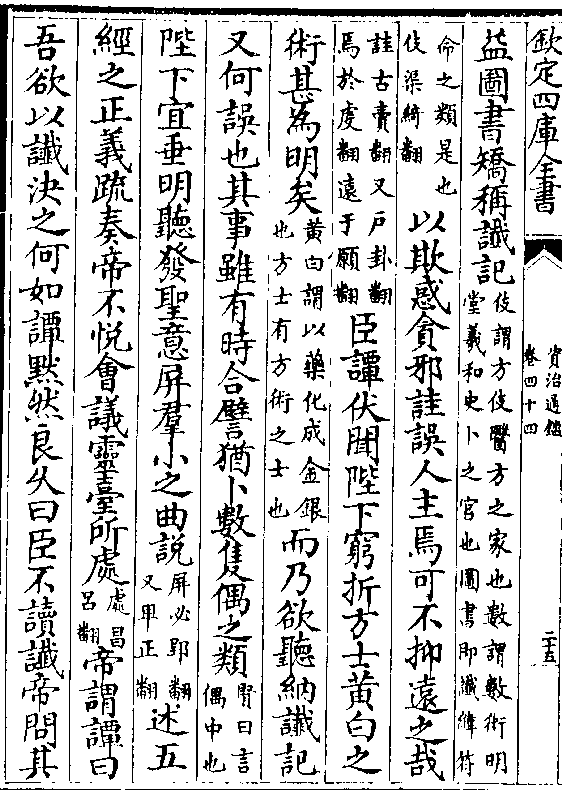 欽定四庫全書
資治通鑑
卷四十四
二十五
益圖書矯稱讖記伎謂方伎醫方之家也數謂數術明堂羲和史卜之官也圖書即讖緯符
命之類是也伎渠綺翻以欺惑貪邪詿誤人主焉可不抑遠之哉
詿古賣翻又戶卦翻焉於虔翻遠于願翻臣譚伏聞陛下窮折方士黃白之
術甚為明矣黃白謂以藥化成金銀也方士有方術之士也而乃欲聽納讖記
又何誤也其事雖有時合譬猶卜數隻偶之類賢曰言偶中也
陛下宜垂明聽發聖意屏羣小之曲說屏必郢翻又卑正翻述五
經之正義疏奏帝不悅會議靈臺所處處昌呂翻帝謂譚曰
吾欲以讖決之何如譚默然良久曰臣不讀讖帝問其